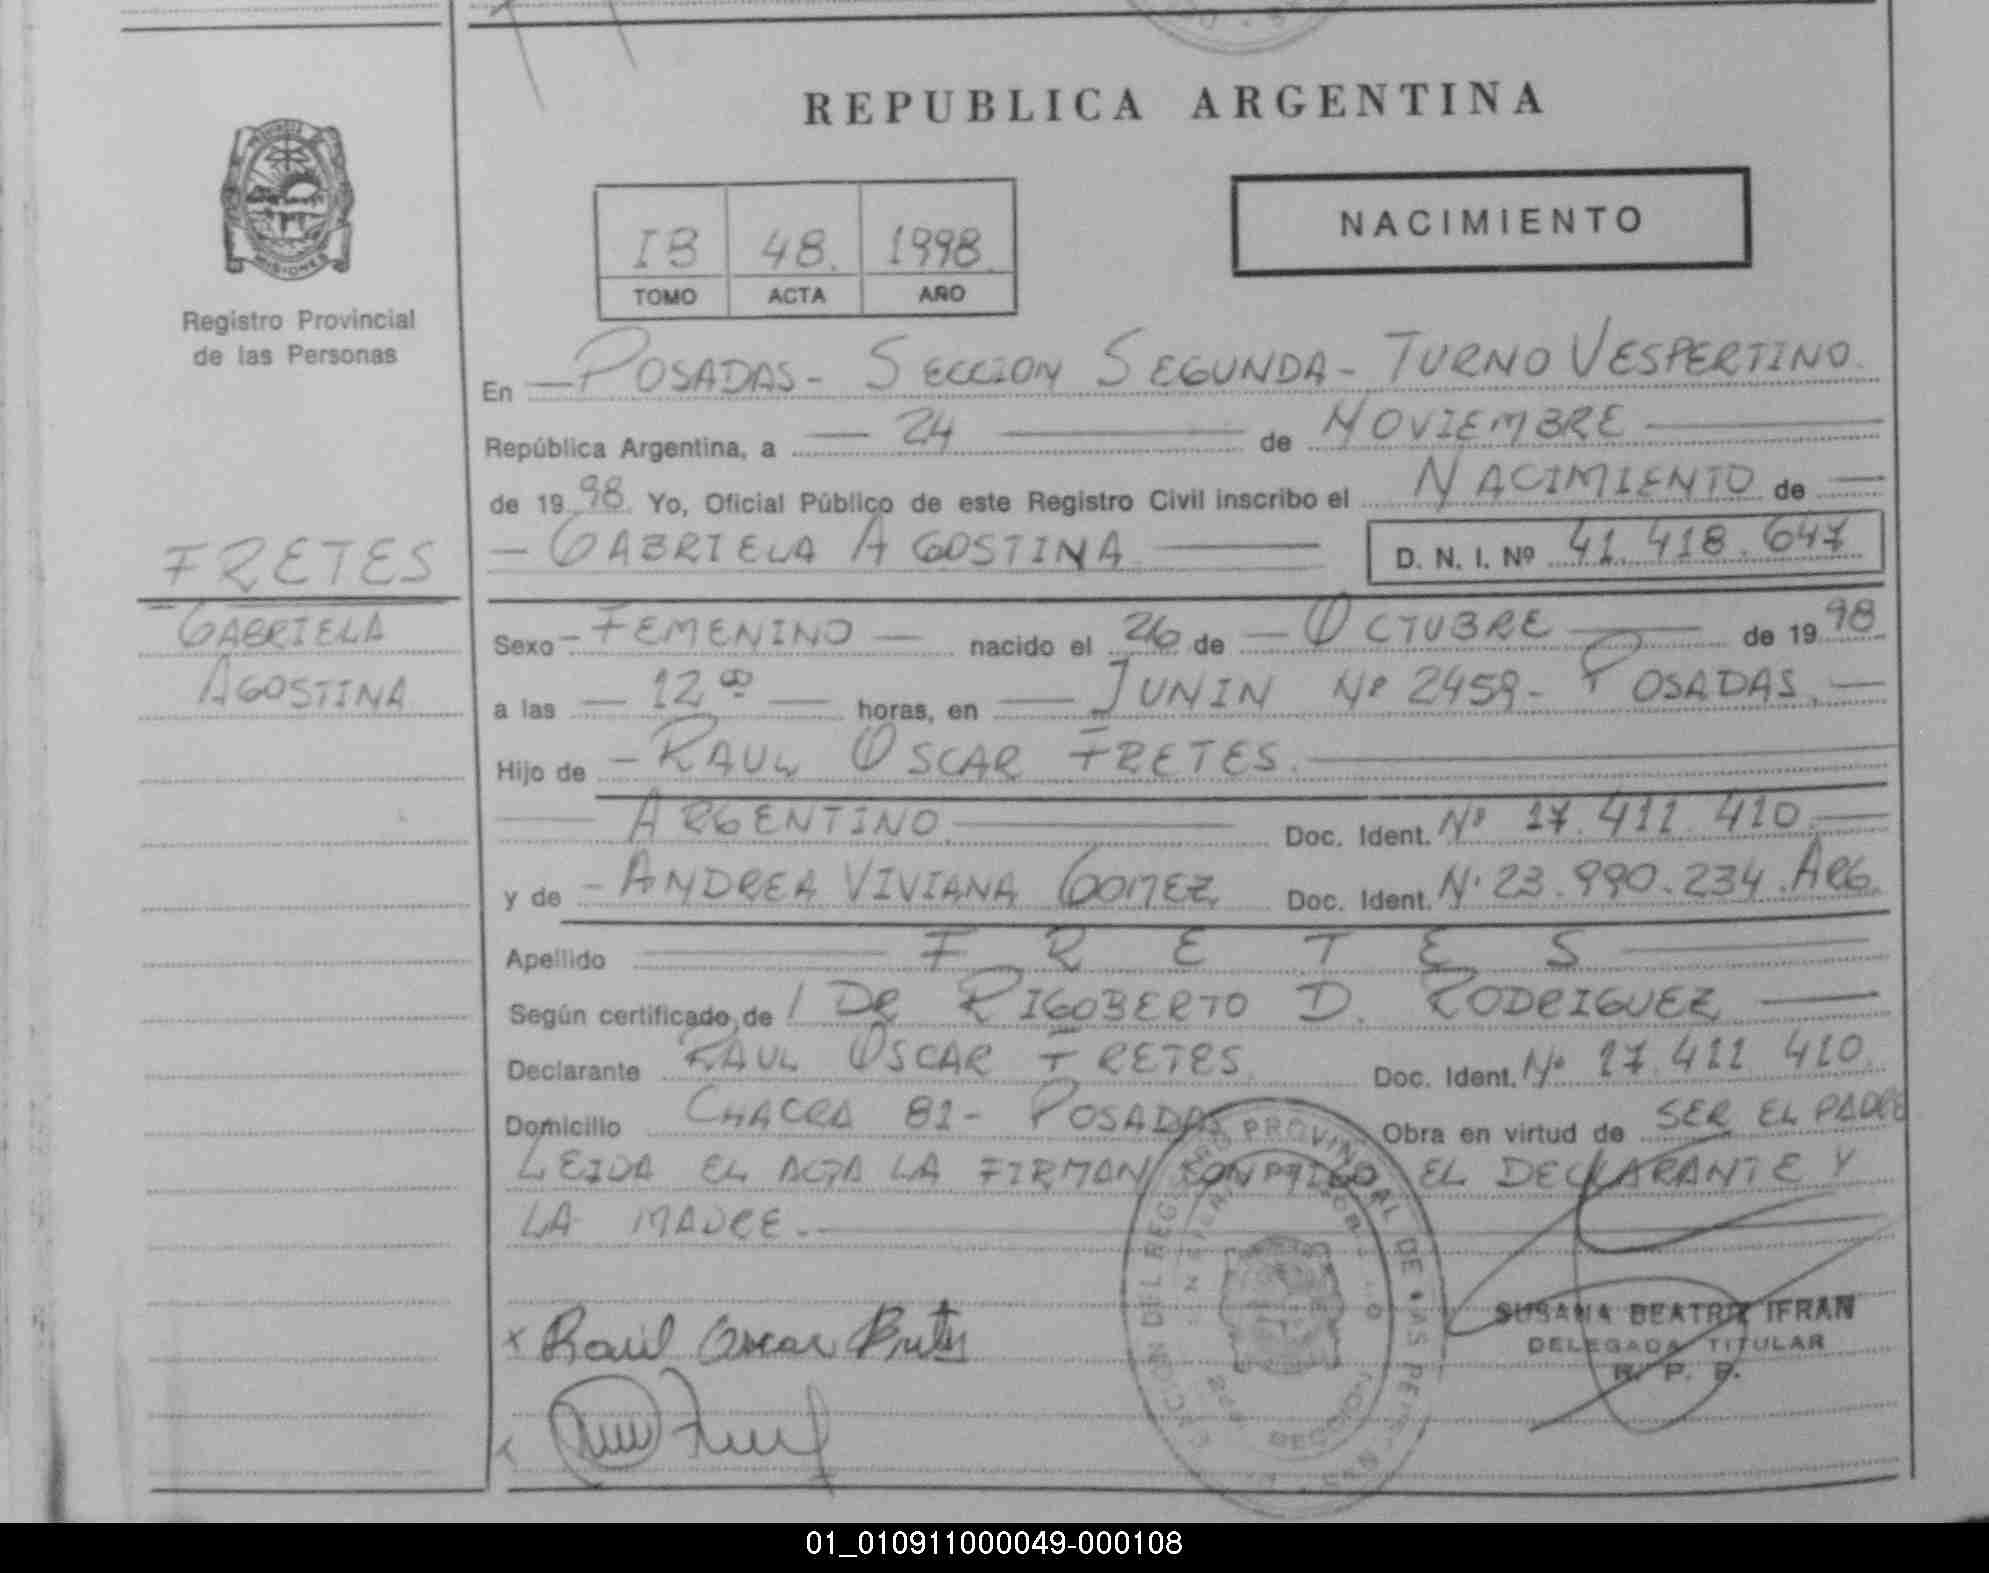 REPUBLICA ARGENTINA
MISIONES
Registro Provincial
de las Personas
IB 48. 1998
TOMO ACTA AÑO
NACIMIENTO
En POSADAS - SECCION SEGUNDA - TURNO VESPERTINO.
República Argentina, a 24 de NOVIEMBRE
de 1998. Yo, Oficial Público de este Registro Civil inscribo el NACIMIENTO de
GABRIELA AGOSTINA D. N. I. Nº 41.418.647
FRETES
GABRIELA
AGOSTINA
Sexo - FEMENINO - nacido el 26 de - OCTUBRE de 1998
a las 12 00 horas, en JUNIN Nº 2459 - POSADAS.
Hijo de - RAUL OSCAR FRETES.
ARGENTINO. Doc. Ident. Nº 17.411.410.
y de - ANDREA VIVIANA GOMEZ Doc. Ident. Nº 23.990.234. ARG.
Apellido F R E T E S
Según certificado de DR RIGOBERTO D. RODRIGUEZ
Declarante RAUL OSCAR FRETES Doc. Ident. Nº 17.411.410.
Domicilio CHACRA 82 - POSADAS Obra en virtud de SER EL PADRE
LEIDA EL ACTA LA FIRMAN CONMIGO EL DECLARANTE Y
LA MADRE.
x Raul Oscar Fretes
SUSANA BEATRIZ IFRAN
DELEGADA TITULAR
R. P. P.
01_010911000049-000108